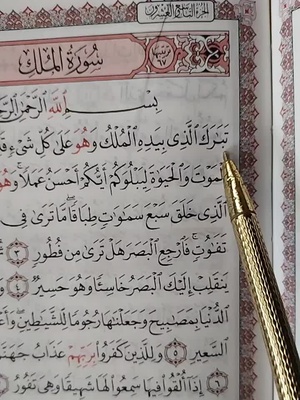 الجزء التاسع والعشرون
سُورَةُ المُلْكِ
بِسْمِ ٱللَّهِ ٱلرَّحْمَٰنِ
تَبَٰرَكَ ٱلَّذِى بِيَدِهِ ٱلْمُلْكُ وَهُوَ عَلَىٰ كُلِّ شَىْءٍ
ٱلْمَوْتَ وَٱلْحَيَوٰةَ لِيَبْلُوَكُمْ أَيُّكُمْ أَحْسَنُ عَمَلًا ۚ وَهُوَ
ٱلَّذِى خَلَقَ سَبْعَ سَمَٰوَٰتٍ طِبَاقًا ۖ مَّا تَرَىٰ فِى
تَفَٰوُتٍ ۖ فَٱرْجِعِ ٱلْبَصَرَ هَلْ تَرَىٰ مِن فُطُورٍ ٣
يَنقَلِبْ إِلَيْكَ ٱلْبَصَرُ خَاسِئًا وَهُوَ حَسِيرٌ ٤
ٱلدُّنْيَا بِمَصَٰبِيحَ وَجَعَلْنَٰهَا رُجُومًا لِّلشَّيَٰطِينِ ۖ
ٱلسَّعِيرِ ٥ وَلِلَّذِينَ كَفَرُوا۟ بِرَبِّهِمْ عَذَابُ
٦ إِذَآ أُلْقُوا۟ فِيهَا سَمِعُوا۟ لَهَا شَهِيقًا وَهِىَ تَفُورُ